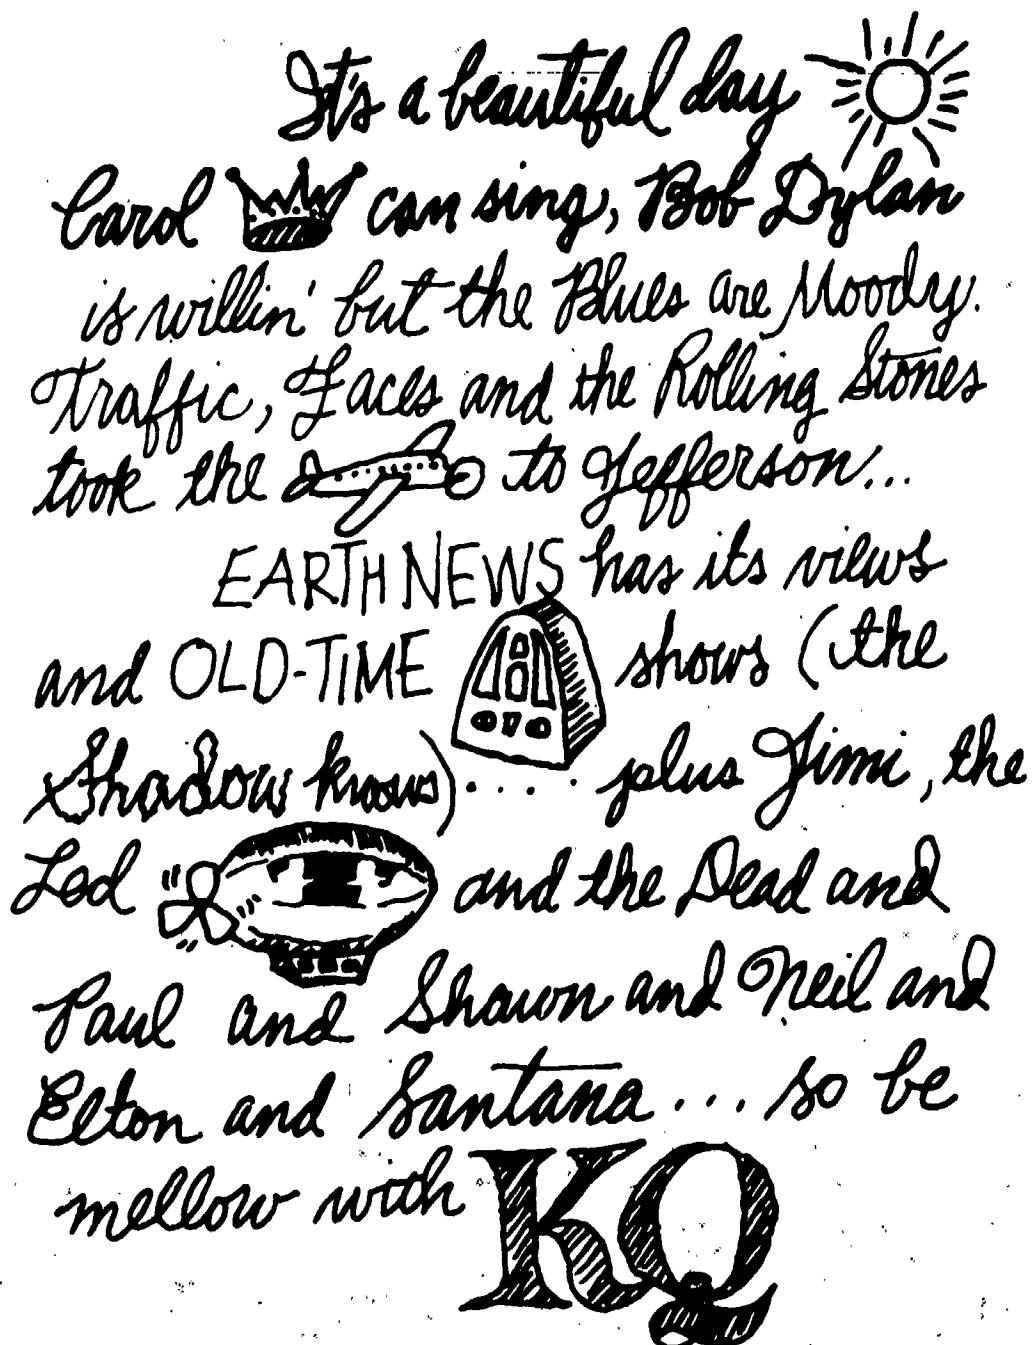 It's a beautiful day
Carol can sing, Bob Dylan
is willin' but the Blues are Moody.
Traffic, Faces and the Rolling Stones
took the to Jefferson...
EARTH NEWS has its views
and OLD-TIME shows (the
Shadow knows).... plus Jimi, the
Led and the Dead and
Paul and Shawn and Neil and
Elton and Santana... so be
mellow with KQ